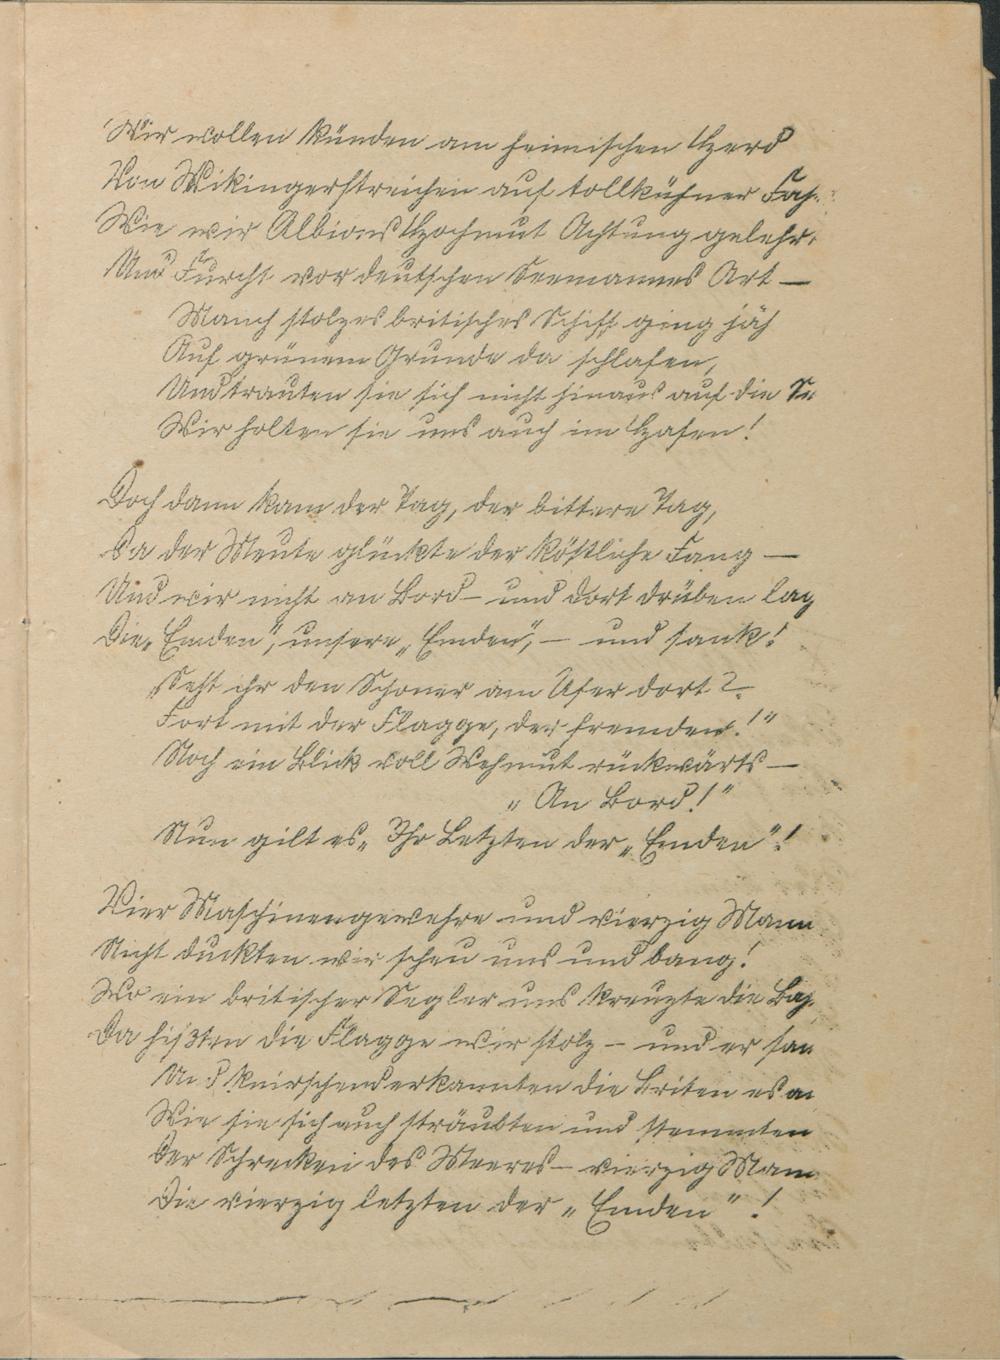 Wir wollen künden am heimischen Herd
Von Wikingerstreichen auf tollkühner Fah
Wie wir Albions Hochmut Achtung gelehr
Und Furcht vor deutschen Seemannes Art —
Manch stolzes britisches Schiff ging jäh
Auf grünem Grunde da schlafen,
Und trauten sie sich nicht hinaus auf die Se
Wir holten sie uns auch im Hafen!
Doch dann kam der Tag, der bittere Tag,
Da der Meute glückte der köstliche Fang —
Und wir nicht an Bord – und dort drüben lag
Die „Emden", unsere „Emden", — und sank!
„Seht ihr den Schoner am Ufer dort?
Fort mit der Flagge, der fremden!"
Noch ein Blick voll Wehmut rückwärts —
„An Bord!"
Nun gilt es, Ihr Letzten der „Emden"!
Vier Maschinengewehre und vierzig Mann
Nicht duckten wir scheu uns und bang!
Wo ein britischer Segler uns kreuzte die Bah
Da hißten die Flagge wir stolz – und er san
Und knirschend erkannten die Briten es an
Wie sie sich auch sträubten und stemmten
Der Schrecken des Meeres – vierzig Mann
Die vierzig letzten der „Emden"!